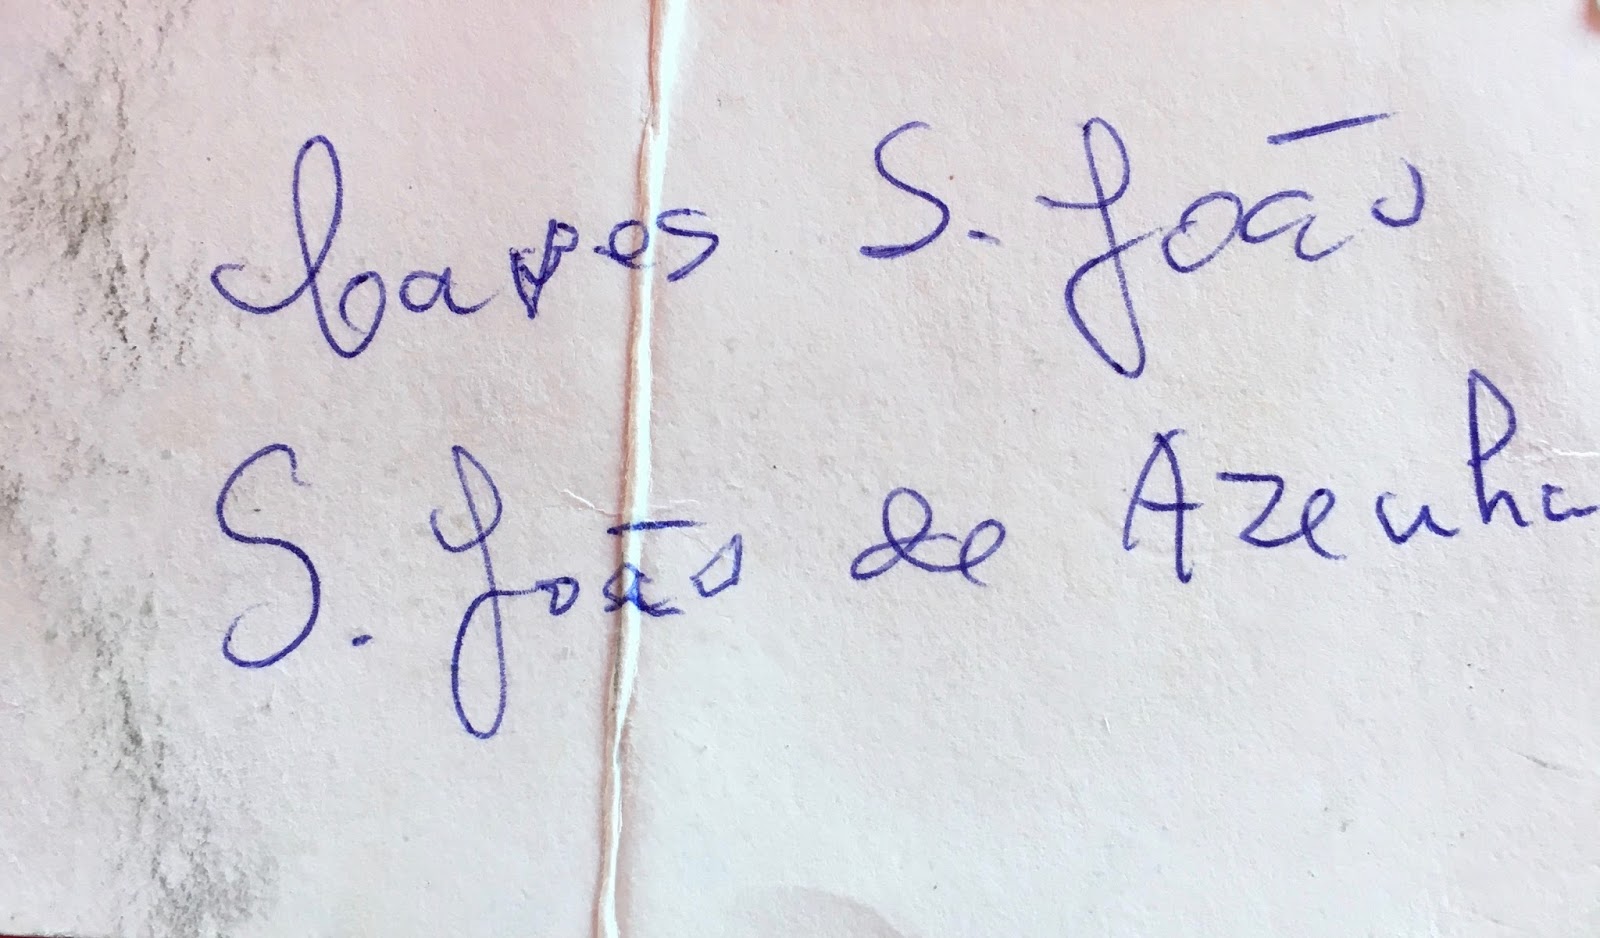 Caves S. João
S. João de Azenha